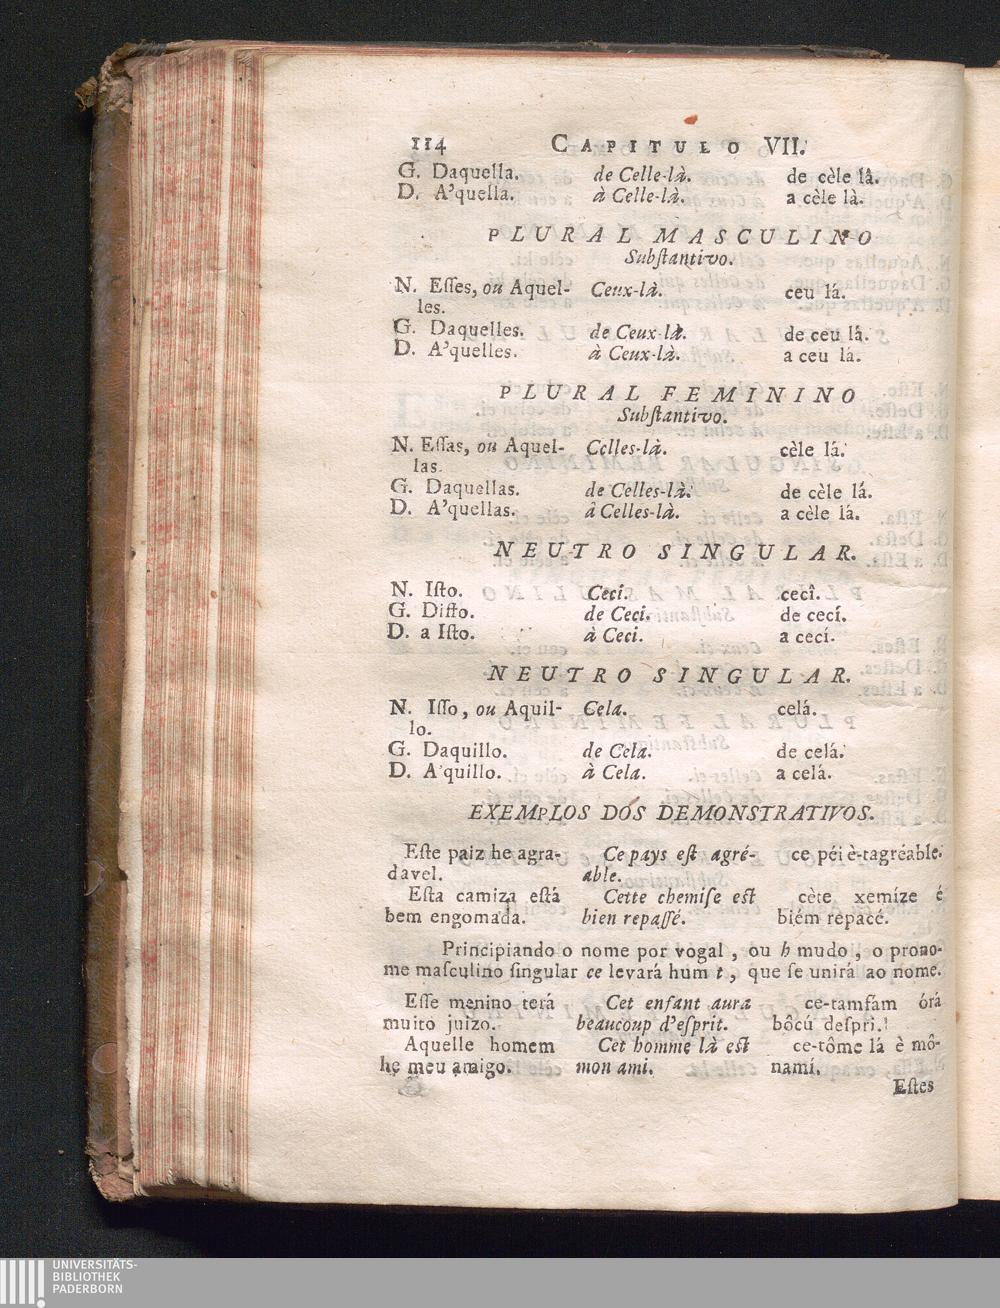 114 CAPITULO VII.
G. Daquella. de Celle-là. de cèle lâ.
D. A'quella. à Celle-là. a cèle là.
PLURAL MASCULINO
Subſtantivo.
N. Eſſes, ou Aquel- Ceux-là. ceu lá.
les.
G. Daquelles. de Ceux-là. de ceu lá.
D. A'quelles. à Ceux-là. a ceu lá.
PLURAL FEMININO
Subſtantivo.
N. Eſſas, ou Aquel- Celles-là. cèle lá.
las.
G. Daquellas. de Celles-là. de cèle lá.
D. A'quellas. à Celles-là. a cèle lá.
NEUTRO SINGULAR.
N. Iſto. Ceci. cecî.
G. Diſto. de Ceci. de cecí.
D. a Iſto. à Ceci. a cecí.
NEUTRO SINGULAR.
N. Iſſo, ou Aquil- Cela. celá.
lo.
G. Daquillo. de Cela. de celá.
D. A'quillo. à Cela. a celá.
EXEMPLOS DOS DEMONSTRATIVOS.
Eſte paiz he agra- Ce pays eſt agré- ce péi è-tagréable.
davel. able.
Eſta camiza eſtá Cette chemiſe eſt cète xemíze é
bem engomada. bien repaſſé. biém repacé.
Principiando o nome por vogal, ou h mudo, o prono-
me maſculino ſingular ce levará hum t, que ſe unirá ao nome.
Eſſe menino terá Cet enfant aura ce-tamfám órá
muito juizo. beaucoup d'eſprit. bôcú deſpri.
Aquelle homem Cet homme là eſt ce-tôme lá è mô-
he meu amigo. mon ami. namí.
Eſtes
UNIVERSITÄTS-
BIBLIOTHEK
PADERBORN